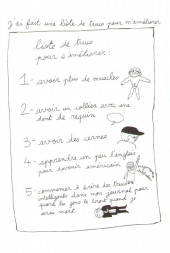 j'ai fait une liste de trucs pour m'améliorer
liste de trucs
pour s'améliorer:
1- avoir plus de muscles
2- avoir un collier avec une
dent de requin
3- avoir des cernes
4- apprendre un peu d'anglais
pour devenir américain
5- commencer à écrire des trucs
intelligents dans mon journal pour
quand les gens le liront quand je
serai mort.